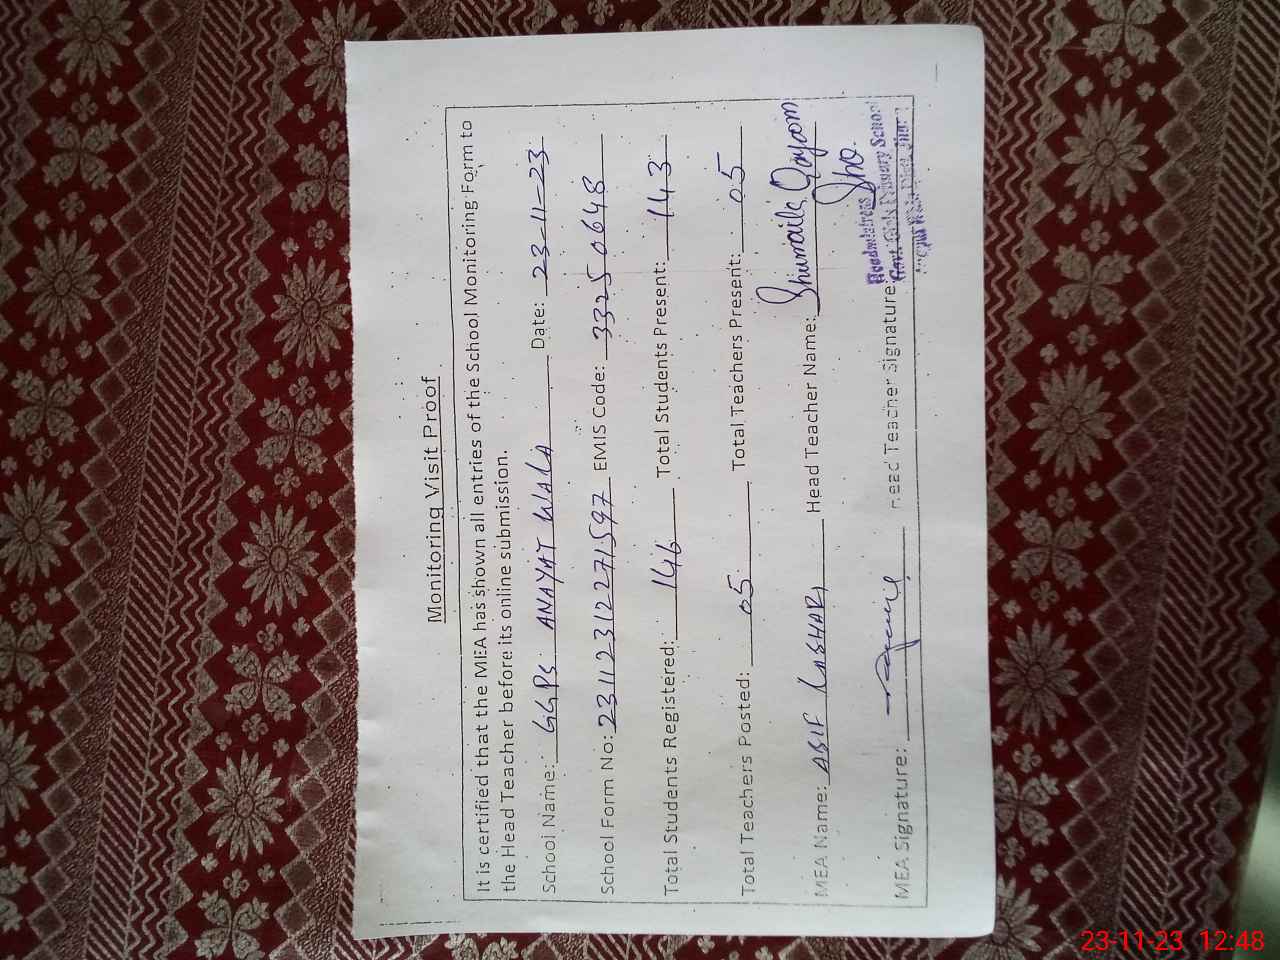 Monitoring Visit Proof
It is certified that the MEA has shown all entries of the School Monitoring Form to
the Head Teacher before its online submission.
School Name: GGPS ANAYAT WALA Date: 23-11-23
School Form No: 23112312271597 EMIS Code: 33250648
Total Students Registered: 146 Total Students Present: 143
Total Teachers Posted: 05 Total Teachers Present: 05
MEA Name: ASIF Head Teacher Name: Shumaila Qayoom
MEA Signature: Head Teacher Signature:
Headmistress
Govt. Girls Primary School
23-11-23 12:48